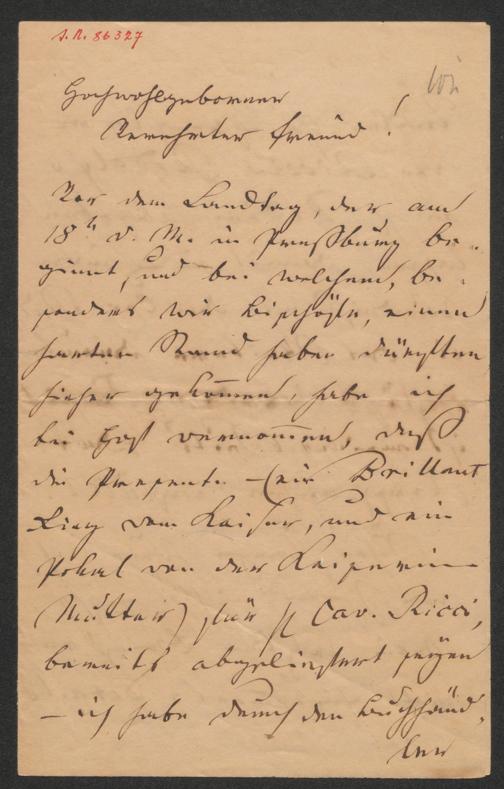 J.N. 86327
Hochwohlgeborner
Verehrter Freund!
Vor dem Landtag, der am
18t d. M. in Preßburg be-
ginnt, und bei welchem, be-
sonders wir Bischöfe, einen
harten Stand haben dürften
hieher gekommen, habe ich
bei Hof vernommen, daß
die Presente – (ein Brillant
Ring vom Kaiser, und ein
Pokal von der Kaiserin
Mutter) für Cav. Ricci,
bereits abgeliefert seyen
– ich habe durch den Buchhänd-
ler